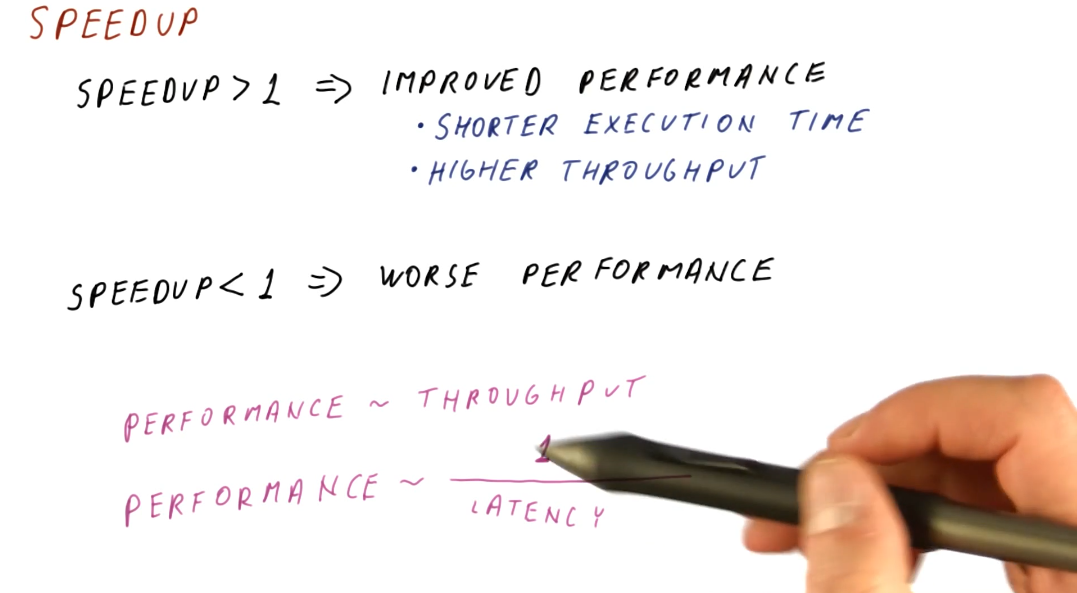 SPEEDUP
SPEEDUP > 1 => IMPROVED PERFORMANCE
• SHORTER EXECUTION TIME
• HIGHER THROUGHPUT
SPEEDUP < 1 => WORSE PERFORMANCE
PERFORMANCE ~ THROUGHPUT
PERFORMANCE ~ 1
LATENCY